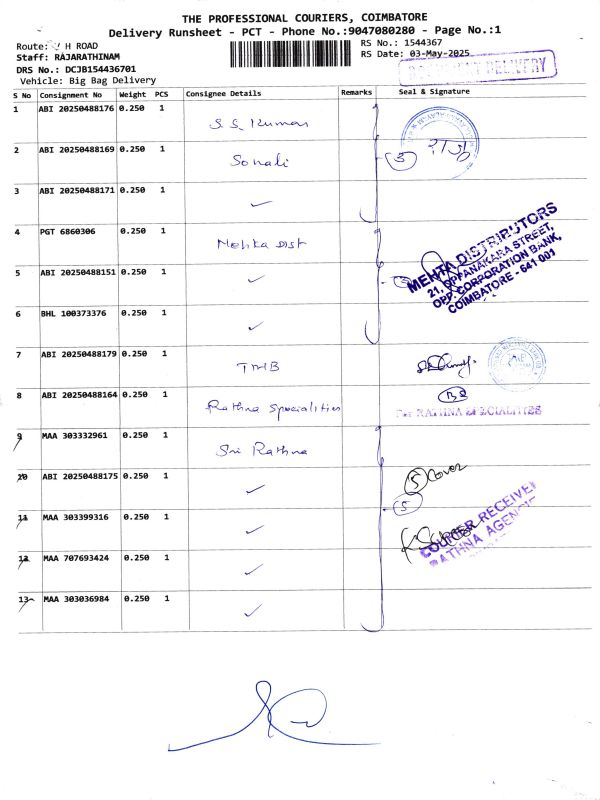 THE PROFESSIONAL COURIERS, COIMBATORE
Delivery Runsheet - PCT - Phone No.:9047080280 - Page No.:1
Route: V H ROAD
RS No.: 1544367
Staff: RAJARATHINAM
RS Date: 03-May-2025
DRS No.: DCJB154436701
Vehicle: Big Bag Delivery
DELIVERY
S No Consignment No Weight PCS Consignee Details Remarks Seal & Signature
1 ABI 20250488176 0.250 1 S.S. Kumar
2 ABI 20250488169 0.250 1 Sonali 3
3 ABI 20250488171 0.250 1 ✓
4 PGT 6860306 0.250 1 Mehta Dist
MEHTA DISTRIBUTORS
21, OPPANAKARA STREET,
OPP. CORPORATION BANK,
COIMBATORE - 641 001
5 ABI 20250488151 0.250 1 ✓
6 BHL 100373376 0.250 1 ✓
7 ABI 20250488179 0.250 1 TMB
8 ABI 20250488164 0.250 1 Rathna Specialities
For RATHNA SPECIALITIES
9 MAA 303332961 0.250 1 Sri Rathna
10 ABI 20250488175 0.250 1 ✓ 5 Cover
5
11 MAA 303399316 0.250 1 ✓
COURIER RECEIVED
RATHNA AGENCIE
12 MAA 707693424 0.250 1 ✓
13 MAA 303036984 0.250 1 ✓